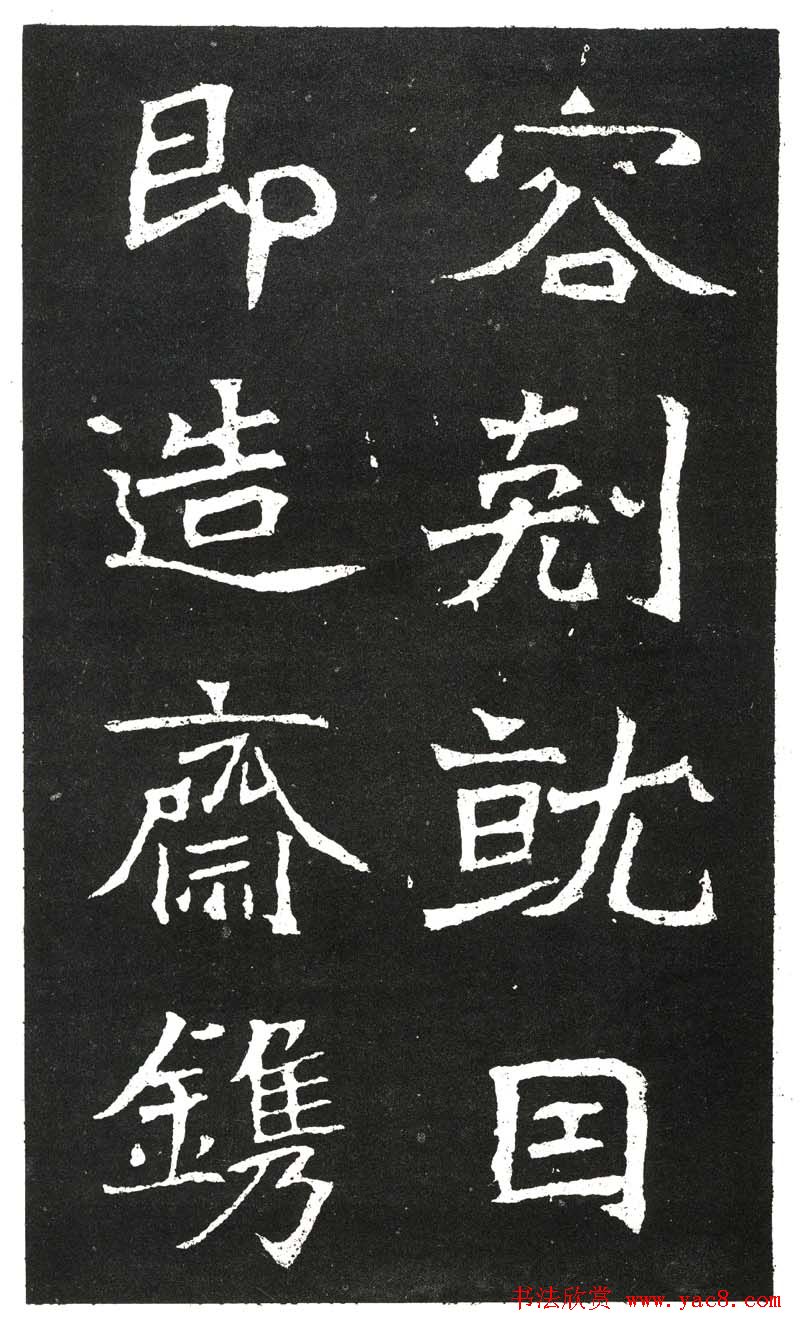 容剋就囙
即造齋鎸
书法欣赏 www.yac8.com